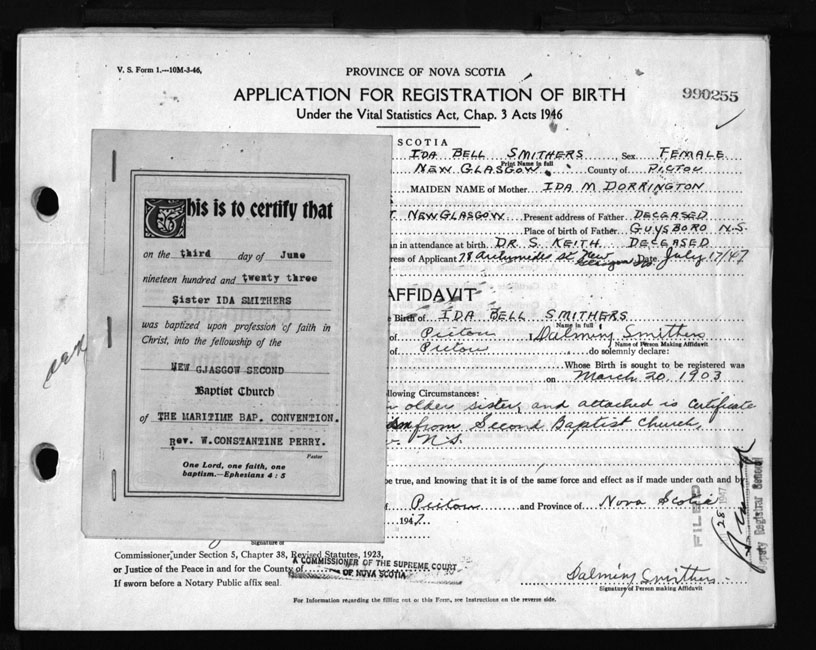 V. S. Form 1.—10M-3-46,
PROVINCE OF NOVA SCOTIA
APPLICATION FOR REGISTRATION OF BIRTH
990255
Under the Vital Statistics Act, Chap. 3 Acts 1946
SCOTIA
IDA BELL SMITHERS Sex FEMALE
Print Name in full
NEW GLASGOW County of PICTOU
MAIDEN NAME of Mother IDA M DORRINGTON
NEW GLASGOW Present address of Father DECEASED
Place of birth of Father GUYSBORO N.S.
an in attendance at birth DR. S. KEITH DECEASED
ress of Applicant 78 St New Glasgow Date July 17/47
AFFIDAVIT
e Birth of IDA BELL SMITHERS
Name in full
of Pictou I Dalminy Smithers
Name of Person Making Affidavit
of Pictou do solemnly declare:
Whose Birth is sought to be registered was
on March 20, 1903
following Circumstances:
older sister, and attached is Certificate
from Second Baptist Church,
N.S.
be true, and knowing that it is of the same force and effect as if made under oath and by
of Pictou and Province of Nova Scotia
1947
This is to certify that
on the third day of June
nineteen hundred and twenty three
Sister IDA SMITHERS
was baptized upon profession of faith in
Christ, into the fellowship of the
NEW GJASGOW SECOND
Baptist Church
of THE MARITIME BAP. CONVENTION.
Rev. W.CONSTANTINE PERRY.
Pastor
One Lord, one faith, one
baptism.—Ephesians 4:5
FILED
28 1947
Deputy Registrar General
Signature of
Commissioner under Section 5, Chapter 38, Revised Statutes, 1923,
or Justice of the Peace in and for the County of A COMMISSIONER OF THE SUPREME COURT
OF NOVA SCOTIA
If sworn before a Notary Public affix seal
Dalminy Smithers
Signature of Person making Affidavit
For Information regarding the filling out of this Form, see Instructions on the reverse side.